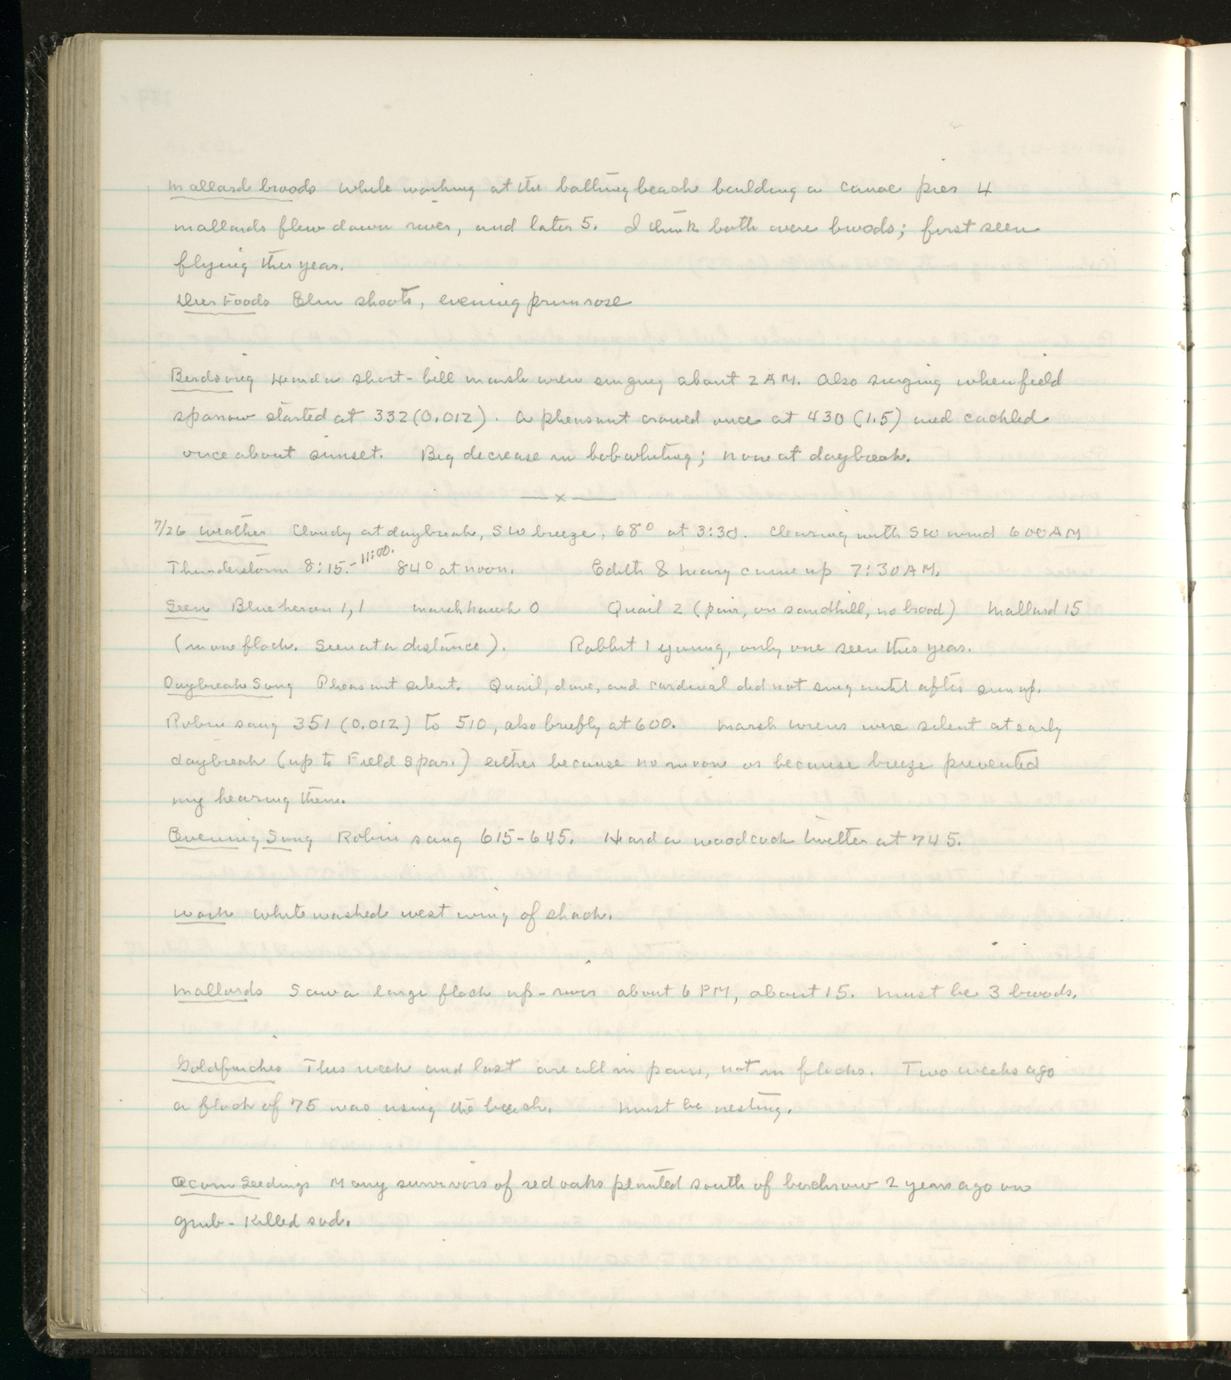 Mallard broods while working at the bathing beach building a canoe pier 4
mallards flew down river, and later 5. I think both were broods; first seen
flying this year.
Deer Foods Elm shoots, evening primrose
Birdsong Heard a short-bill marsh wren singing about 2 AM. Also singing when field
sparrow started at 332 (0.012). A pheasant crowed once at 430 (1.5) and cackled
once about sunset. Big decrease in bobwhiting; none at daybreak.
x
7/26 Weather Cloudy at daybreak, SW breeze, 68° at 3:30. Clearing with SW wind 600 AM
Thunderstorm 8:15-11:00. 84° at noon. Edith & Mary came up 7:30 AM.
Seen Blue heron 1,1 marsh hawk 0 Quail 2 (pair, on sandhill, no brood) Mallard 15
(in one flock. Seen at a distance). Rabbit 1 young, only one seen this year.
Daybreak Song Pheasant silent. Quail, dove, and cardinal did not sing until after sunup.
Robin sang 351 (0.012) to 510, also briefly at 600. Marsh wrens were silent at early
daybreak (up to Field Spar.) either because no moon or because breeze prevented
my hearing them.
Evening Song Robin sang 615-645. Heard a woodcock twitter at 745.
Work Whitewashed west wing of shack.
Mallards Saw a large flock up-river about 6 PM, about 15. Must be 3 broods.
Goldfinches This week and last are all in pairs, not in flocks. Two weeks ago
a flock of 75 was using the beach. Must be nesting.
Acorn Seedings Many survivors of red oaks planted south of birchrow 2 years ago on
grub-killed sod.